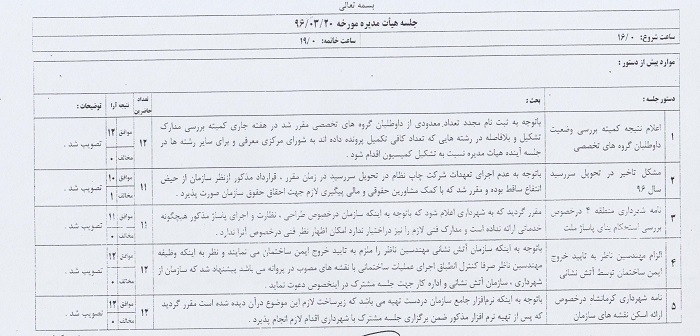 بسمه تعالی
جلسه هیأت مدیره مورخه ۹۶/۰۳/۲۰
ساعت شروع: ۱۶/۰
ساعت خاتمه: ۱۹/۰
موارد پیش از دستور :
دستور جلسه :
بحث :
تعداد حاضرین
نتیجه آرا
توضیحات :
۱
اعلام نتیجه کمیته بررسی وضعیت
داوطلبان گروه های تخصصی
باتوجه به ثبت نام مجدد تعداد معدودی از داوطلبان گروه های تخصصی مقرر شد در هفته جاری کمیته بررسی مدارک
تشکیل و بلافاصله در رشته هایی که تعداد کافی تکمیل پرونده داده اند به شورای مرکزی معرفی و برای سایر رشته ها در
جلسه آینده هیأت مدیره نسبت به تشکیل کمیسیون اقدام شود .
۱۲
موافق ۱۲
مخالف ۰
تصویب شد .
۲
مشکل تاخیر در تحویل سررسید
سال ۹۶
باتوجه به عدم اجرای تعهدات شرکت چاپ نظام در تحویل سررسید در زمان مقرر ، قرارداد مذکور ازنظر سازمان از حیض
انتفاع ساقط بوده و مقرر شد که با کمک مشاورین حقوقی و مالی پیگیری لازم جهت احقاق حقوق سازمان صورت پذیرد .
۱۱
موافق ۱۰
مخالف ۱
تصویب شد .
۳
نامه شهرداری منطقه ۴ درخصوص
بررسی استحکام بنای پاساژ ملت
مقرر گردید که به شهرداری اعلام شود که باتوجه به اینکه سازمان درخصوص طراحی ، نظارت و اجرای پاساژ مذکور هیچگونه
خدماتی ارائه نداده است و مدارک فنی لازم را نیز دراختیار ندارد امکان اظهار نظر فنی درخصوص آنرا ندارد .
۱۱
موافق ۱۱
مخالف ۰
تصویب شد .
۴
الزام مهندسین ناظر به تایید خروج
ایمن ساختمان توسط آتش نشانی
باتوجه به اینکه سازمان آتش نشانی مهندسین ناظر را ملزم به تایید خروج ایمن ساختمان می نمایند و نظر به اینکه وظیفه
مهندسین ناظر صرفا کنترل انطباق اجرای عملیات ساختمانی با نقشه های مصوب در پروانه می باشد پیشنهاد شد که سازمان از
شهرداری ، سازمان آتش نشانی و اداره کار جهت جلسه مشترک در اینخصوص دعوت نماید
۱۲
موافق ۱۲
مخالف ۰
تصویب شد .
۵
نامه شهرداری کرمانشاه درخصوص
ارائه اسکن نقشه های سازمان
باتوجه به اینکه نرم‌افزار جامع سازمان دردست تهیه می باشد که زیرساخت لازم این موضوع درآن دیده شده است مقرر گردید
که پس از تهیه نرم افزار مذکور ضمن برگزاری جلسه مشترک با شهرداری اقدام لازم انجام پذیرد .
۱۲
موافق ۱۲
مخالف ۰
تصویب شد .